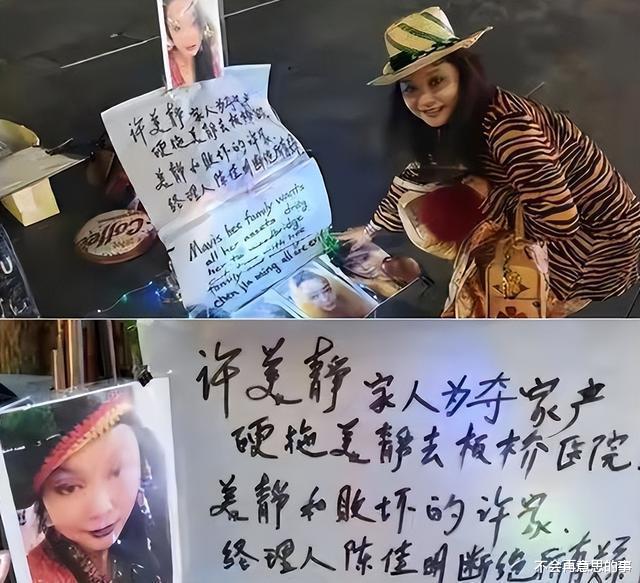 许美静家人为夺家产
硬拖美静去板桥
美静和败坏的许家.
经理人陈佳明断绝
Mavis hee family wants
all her assets drag
her to
family with hee
chen jia ming all
Coffee
许美静 家人为夺家产
硬拖美静去板桥医院.
美静和败坏的许家.
经理人陈佳明断绝所有关系
不会再意思的事